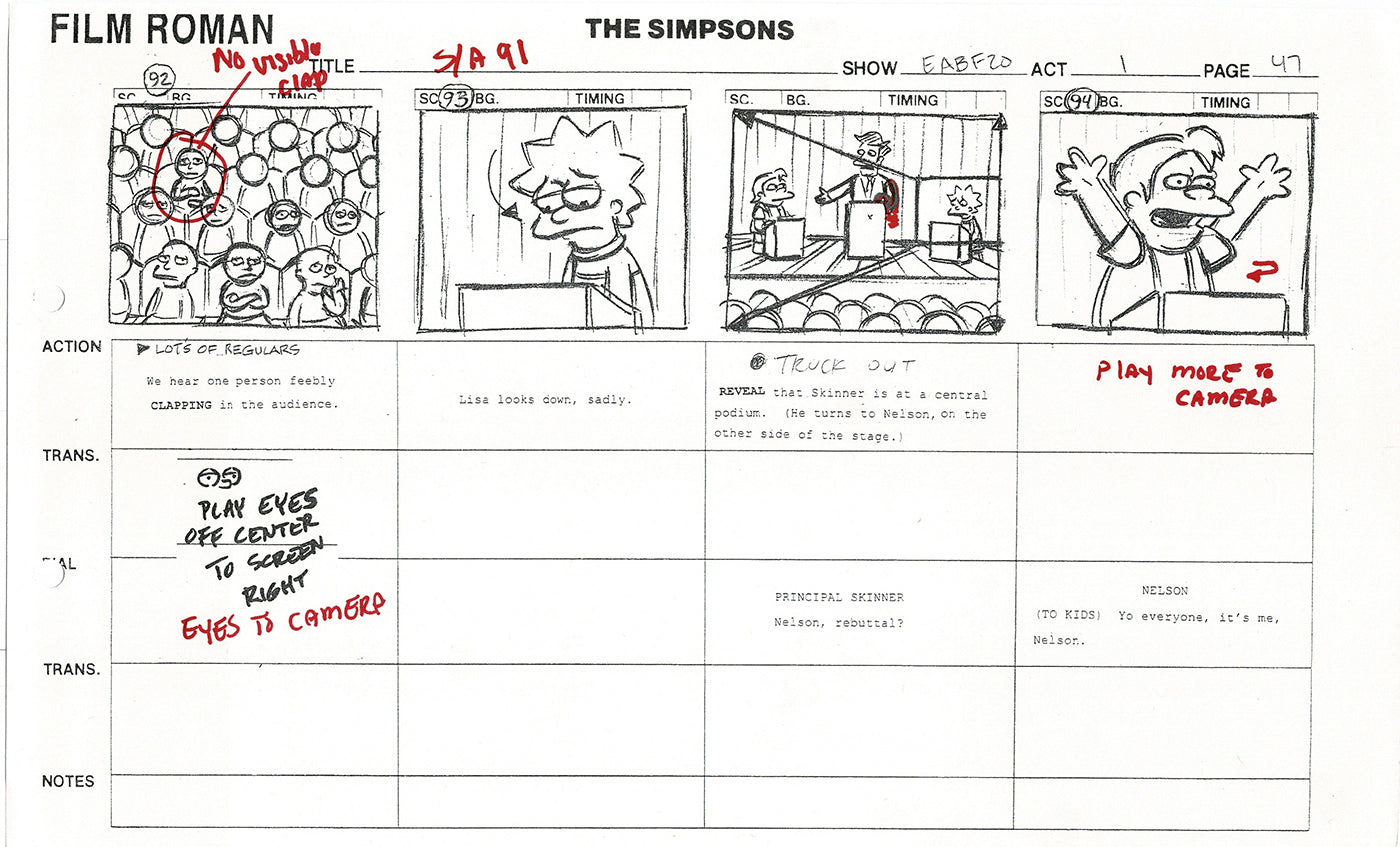 FILM ROMAN
THE SIMPSONS
No visible
clap
TITLE S/A 91
SHOW EABF20 ACT 1 PAGE 47
92
SC. BG. TIMING
SC. 93 BG. TIMING
SC. BG. TIMING
SC. 94 BG. TIMING
ACTION
LOTS OF REGULARS
We hear one person feebly
CLAPPING in the audience.
Lisa looks down, sadly.
TRUCK OUT
REVEAL that Skinner is at a central
podium. (He turns to Nelson, on the
other side of the stage.)
PLAY MORE TO
CAMERA
TRANS.
PLAY EYES
OFF CENTER
TO SCREEN
RIGHT
EYES TO CAMERA
AL
PRINCIPAL SKINNER
Nelson, rebuttal?
NELSON
(TO KIDS) Yo everyone, it's me,
Nelson.
TRANS.
NOTES